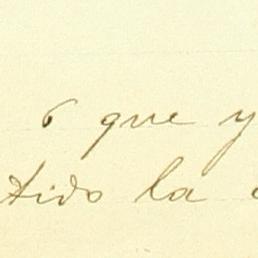 ó que y
tido la